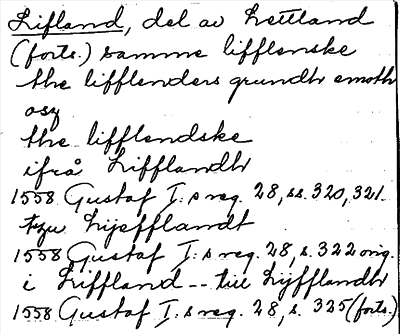 Lifland, del av Lettland
(forts.) samme lifflenske
the lifflenders grundtr emoth
osz
the lifflendske
ifrå Lifflandtr
1558 Gustaf I:s reg. 28, ss. 320, 321.
tzu Lijefflandt
1558 Gustaf I:s reg. 28, s. 322 orig.
i Liffland -- till Lijfflandtr
1558 Gustaf I:s reg. 28, s. 325 (forts.)